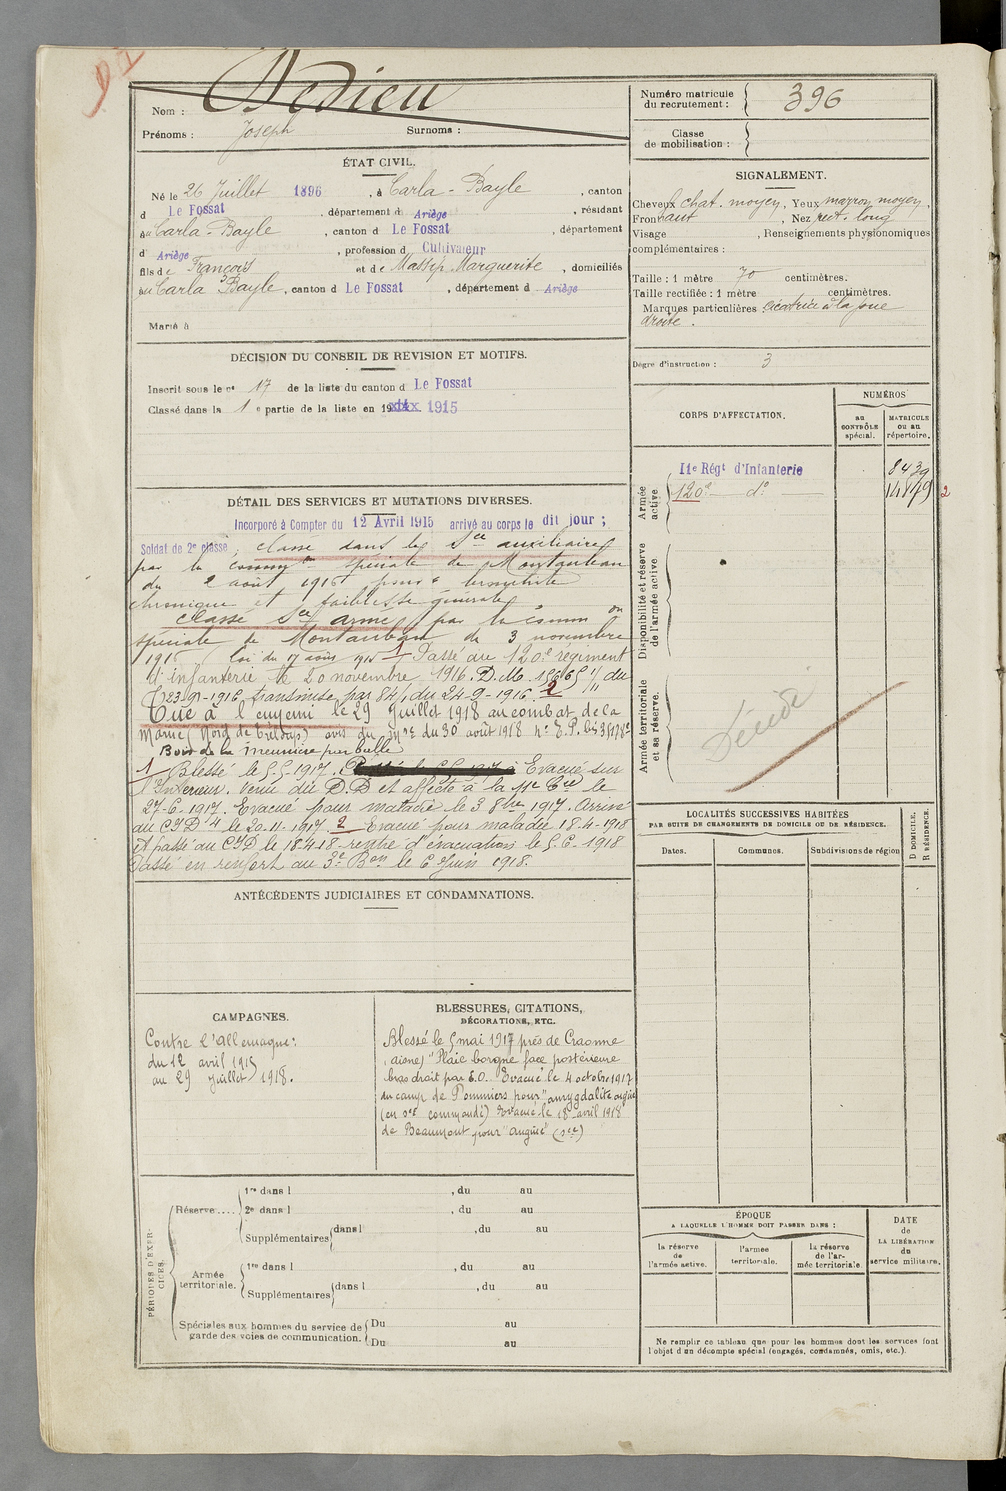 Nom : Dedieu
Prénoms : Joseph Surnoms :
Numéro matricule du recrutement : 396
Classe de mobilisation :
ÉTAT CIVIL.
Né le 26 Juillet 1896, à Carla-Bayle, canton
d Le Fossat, département d Ariège, résidant
au Carla-Bayle, canton d Le Fossat, département
d Ariège, profession d Cultivateur
fils de François et de Massip Marguerite, domiciliés
au Carla Bayle, canton d Le Fossat, département d Ariège
Marié à
SIGNALEMENT.
Cheveux chat. moyen, Yeux marron moyen,
Front haut, Nez rect. long
Visage , Renseignements physionomiques
complémentaires :
Taille : 1 mètre 70 centimètres.
Taille rectifiée : 1 mètre centimètres.
Marques particulières cicatrice à la joue
droite.
Degré d'instruction : 3
DÉCISION DU CONSEIL DE RÉVISION ET MOTIFS.
Inscrit sous le n° 17 de la liste du canton d Le Fossat
Classé dans la 1e partie de la liste en 1915
CORPS D'AFFECTATION.
NUMÉROS
au CONTRÔLE spécial.
MATRICULE ou au répertoire.
Armée active
11e Régt d'Infanterie 8439
120e do 14149 2
Disponibilité et réserve de l'armée active
Armée territoriale et sa réserve.
Décédé
DÉTAIL DES SERVICES ET MUTATIONS DIVERSES.
Incorporé à Compter du 12 Avril 1915 arrivé au corps le dit jour ;
Soldat de 2e classe, classé dans le Sce auxiliaire
par la common spéciale de Montauban
du 2 août 1916 pour bronchite
chronique et faiblesse générale
Classé Sce armé par la common
spéciale de Montauban du 3 novembre
1916 loi du 17 août 1915 1 Passé au 120e régiment
d'infanterie le 20 novembre 1916. D.M. 15669 1/11 du
23-9-1916 transmise par 84 du 24-9-1916. 2
Tué à l'ennemi le 29 Juillet 1918 au combat de la
Marne (Nord de Tréloup) avis du 30 août 1918
Bois de la par balle
1 Blessé le 5.5.1917. Evacué sur
l'Intérieur. Venu du D.D et affecté à la 11e Cie le
27-6-1917. Evacué pour maladie le 3 8bre 1917. Arrivé
au CID 4 le 20-11-1917 2 Evacué pour maladie 18-4-1918
et passé au CID le 18-4-18 - rentré d'évacuation le 5.6-1918
Passé en renfort au 3e Bon le 6 Juin 1918.
LOCALITÉS SUCCESSIVES HABITÉES
PAR SUITE DE CHANGEMENTS DE DOMICILE OU DE RÉSIDENCE.
Dates.
Communes.
Subdivisions de région
D DOMICILE. R RÉSIDENCE.
ANTÉCÉDENTS JUDICIAIRES ET CONDAMNATIONS.
CAMPAGNES.
Contre l'Allemagne :
du 12 avril 1915
au 29 Juillet 1918.
BLESSURES, CITATIONS,
DÉCORATIONS, ETC.
Blessé le 5 mai 1917 près de Craonne
(aisne) "Plaie borgne face postérieure
bras droit par E.O. Evacué le 4 octobre 1917
du camp de Pommiers pour "amygdalite aigüe
(en sce commandé) Evacué le 18 avril 1918
de Beaumont pour "angine" (sce)
PÉRIODES D'EXERCICES.
Réserve....
1re dans l , du au
2e dans l , du au
Supplémentaires dans l , du au
Armée territoriale.
1re dans l , du au
Supplémentaires dans l , du au
Spéciales aux hommes du service de garde des voies de communication.
Du au
Du au
ÉPOQUE
A LAQUELLE L'HOMME DOIT PASSER DANS :
la réserve de l'armée active.
l'armée territoriale.
la réserve de l'armée territoriale
DATE de LA LIBÉRATION du service militaire.
Ne remplir ce tableau que pour les hommes dont les services font
l'objet d'un décompte spécial (engagés, condamnés, omis, etc.).